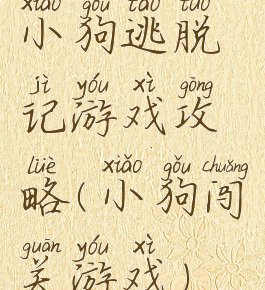 xiǎo gǒu táo tuō
小狗逃脱
jì yóu xì gōng
记游戏攻
lüè xiǎo gǒu chuǎng
略(小狗闯
guān yóu xì
关游戏)